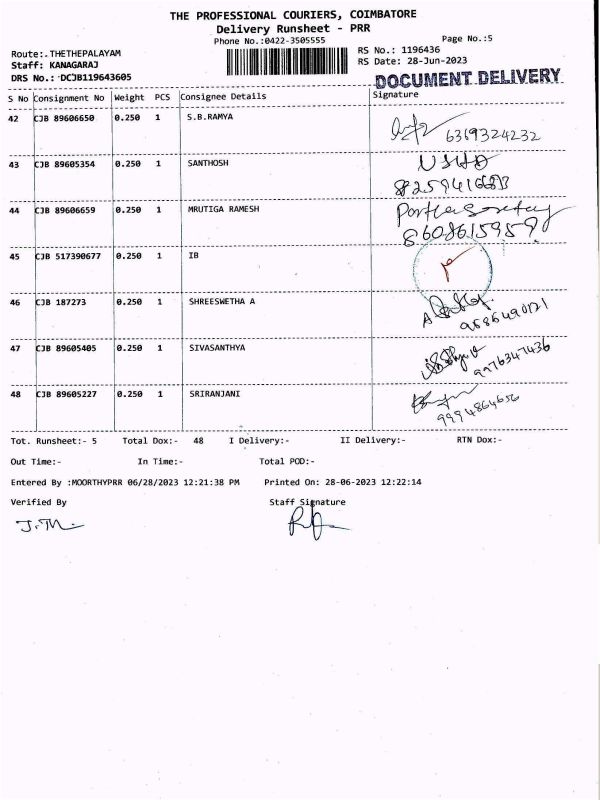 THE PROFESSIONAL COURIERS, COIMBATORE
Delivery Runsheet - PRR
Phone No.:0422-3505555 Page No.:5
Route:.THETHEPALAYAM RS No.: 1196436
Staff: KANAGARAJ RS Date: 28-Jun-2023
DRS No.: DCJB119643605 DOCUMENT DELIVERY
S No Consignment No Weight PCS Consignee Details Signature
42 CJB 89606650 0.250 1 S.B.RAMYA
6369324232
43 CJB 89605354 0.250 1 SANTHOSH USHA
44 CJB 89606659 0.250 1 MRUTIGA RAMESH
8608615959
45 CJB 517390677 0.250 1 IB
46 CJB 187273 0.250 1 SHREESWETHA A
47 CJB 89605405 0.250 1 SIVASANTHYA
9976347436
48 CJB 89605227 0.250 1 SRIRANJANI
9994864656
Tot. Runsheet:- 5 Total Dox:- 48 I Delivery:- II Delivery:- RTN Dox:-
Out Time:- In Time:- Total POD:-
Entered By :MOORTHYPRR 06/28/2023 12:21:38 PM Printed On: 28-06-2023 12:22:14
Verified By Staff Signature